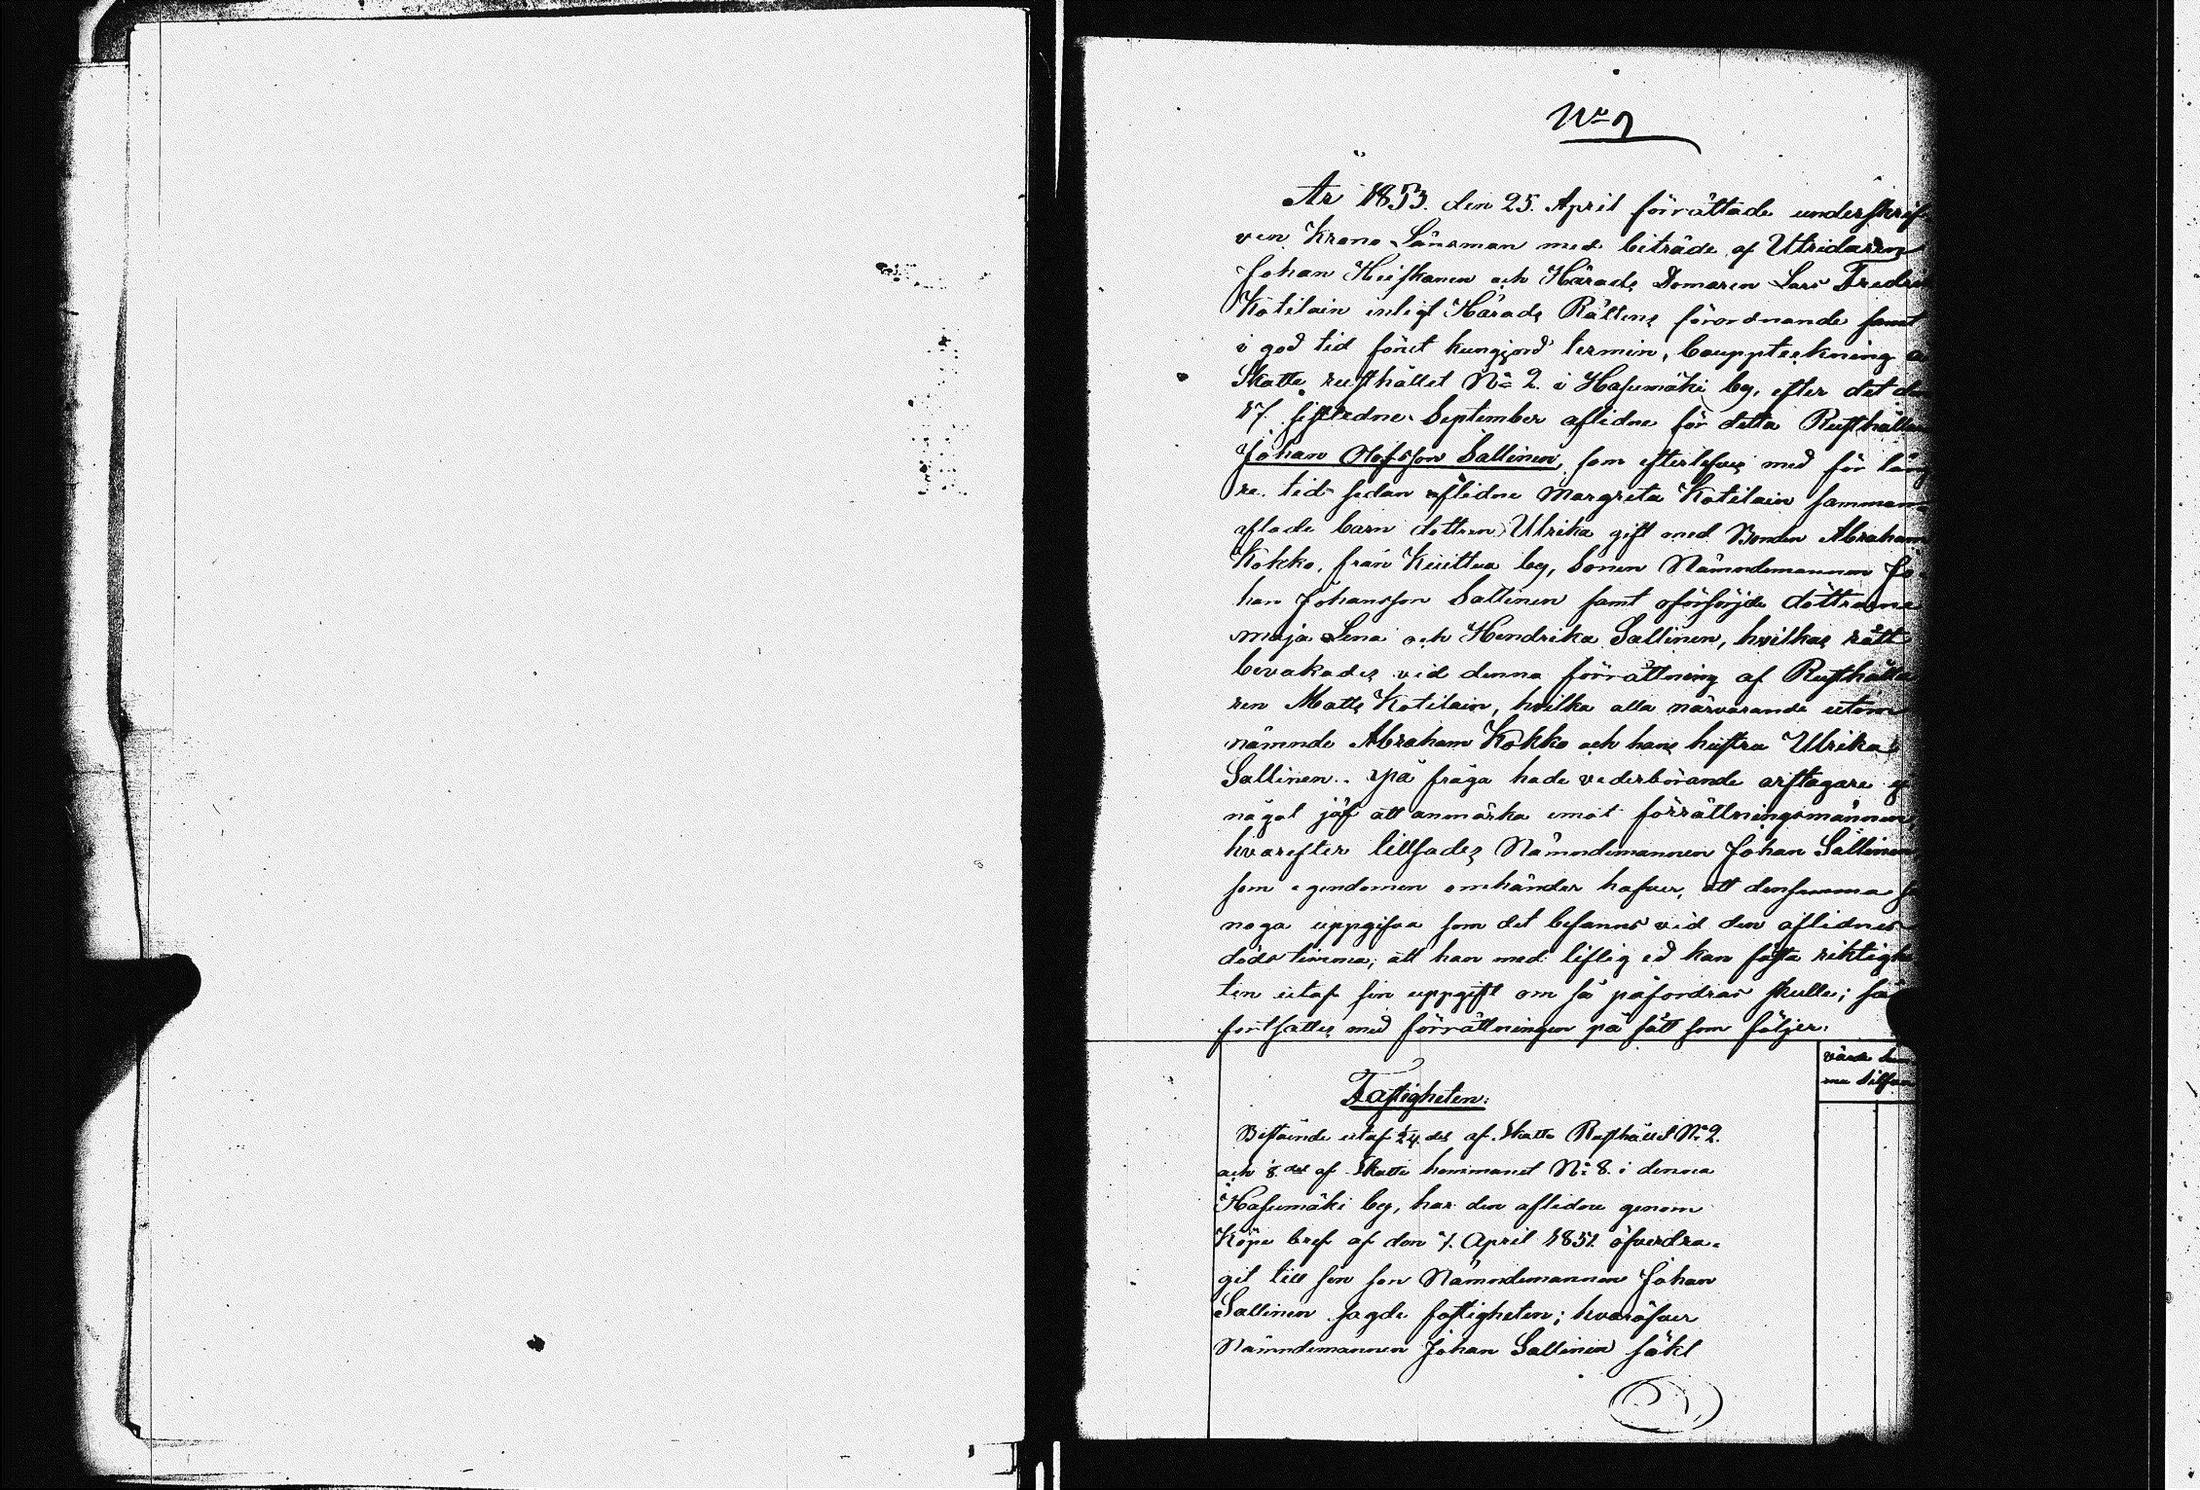 No 9
År 1853. den 25. April förrättade underskrif
ven Krono Länsman med biträde af Utridaren
Johan Heiskanen och Härads Domaren Lars Fredrik
Kotilain enligt Härads Rättens förordnande samt
i god tid förut kungjord termin, bouppteckning
Skatte rusthållet No 2. i Hasumäki by, efter det
17 sistledne September aflidne för detta Rusthållar
Johan Olofsson Sallinen, som efterlefves med för läng
re tid sedan aflidne Margreta Kotilain samman
aflade barn dottren Ulrika gift med Bonden Abraham
Kokko, från by, Sonen Nämndemannen Jo
han Johansson Sallinen samt oförsörjde döttrarne
Maja Lena och Hendrika Sallinen, hvilkas rätt
bevakades vid denna förrättning af Rusthålla
ren Matts Kotilain, hvilka alla närvarande utom
nämnde Abraham Kokko och hans hustru Ulrika
Sallinen. på fråga hade vederbörande arftagare ej
något jäf att anmärka emot förrättningsmännen,
hvarefter tillsades Nämndemannen Johan Sallinen
som egendomen omhänder hafver, att densamma så
noga uppgifva som det befanns vid den aflidnes
döds timma, att han med liflig ed kan fästa riktighe
ten utaf sin uppgift om så påfordras skulle; så
fortsattes med förrättningen på sätt som följer:
värde
Fastigheten:
Bestående utaf 1/24 del af Skatte Rusthållet No 2.
och 1/8 del af Skatte hemmanet No 8. i denna
Hasumäki by, har den aflidne genom
Köpe bref af den 7. April 1851. öfverdra-
git till sin son Nämndemannen Johan
Sallinen sagde fastigheten; hvaröfver
Nämndemannen Johan Sallinen sökt